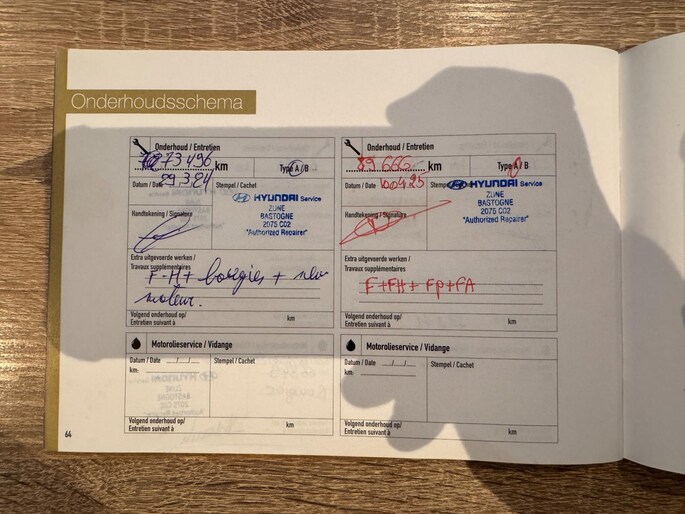 Onderhoudsschema
Onderhoud / Entretien
73 496 km
Type A / B
Datum / Date
Stempel / Cachet
HYUNDAI Service
ZUNE
BASTOGNE
2075 C02
"Authorized Repairer"
Handtekening / Signature
Extra uitgevoerde werken /
Travaux supplémentaires
F-H + bougies +
moteur.
Volgend onderhoud op/
Entretien suivant à km
Onderhoud / Entretien
89 666 km
Type A / B
Datum / Date
HYUNDAI Service
ZUNE
BASTOGNE
2075 C02
"Authorized Repairer"
Handtekening / Signature
Extra uitgevoerde werken /
Travaux supplémentaires
F+FH + FP+FA
Volgend onderhoud op/
Entretien suivant à km
Motorolieservice / Vidange
Datum / Date __/__/__ Stempel / Cachet
km:
Volgend onderhoud op/
Entretien suivant à km
Motorolieservice / Vidange
Datum / Date __/__/__ Stempel / Cachet
km:
Volgend onderhoud op/
Entretien suivant à km
64